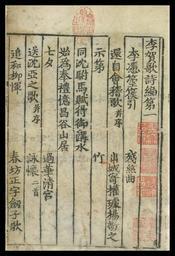 李賀歌詩編第一
李憑箜篌引　殘絲曲
還自會稽歌并序　出城寄權璩楊敬之
示弟　竹
同沈駙馬賦得御溝水
始為奉禮憶昌谷山居
七夕　過華清宮
送沈亞之歌并序　詠懷二首
追和柳惲　春坊正字劒子歌